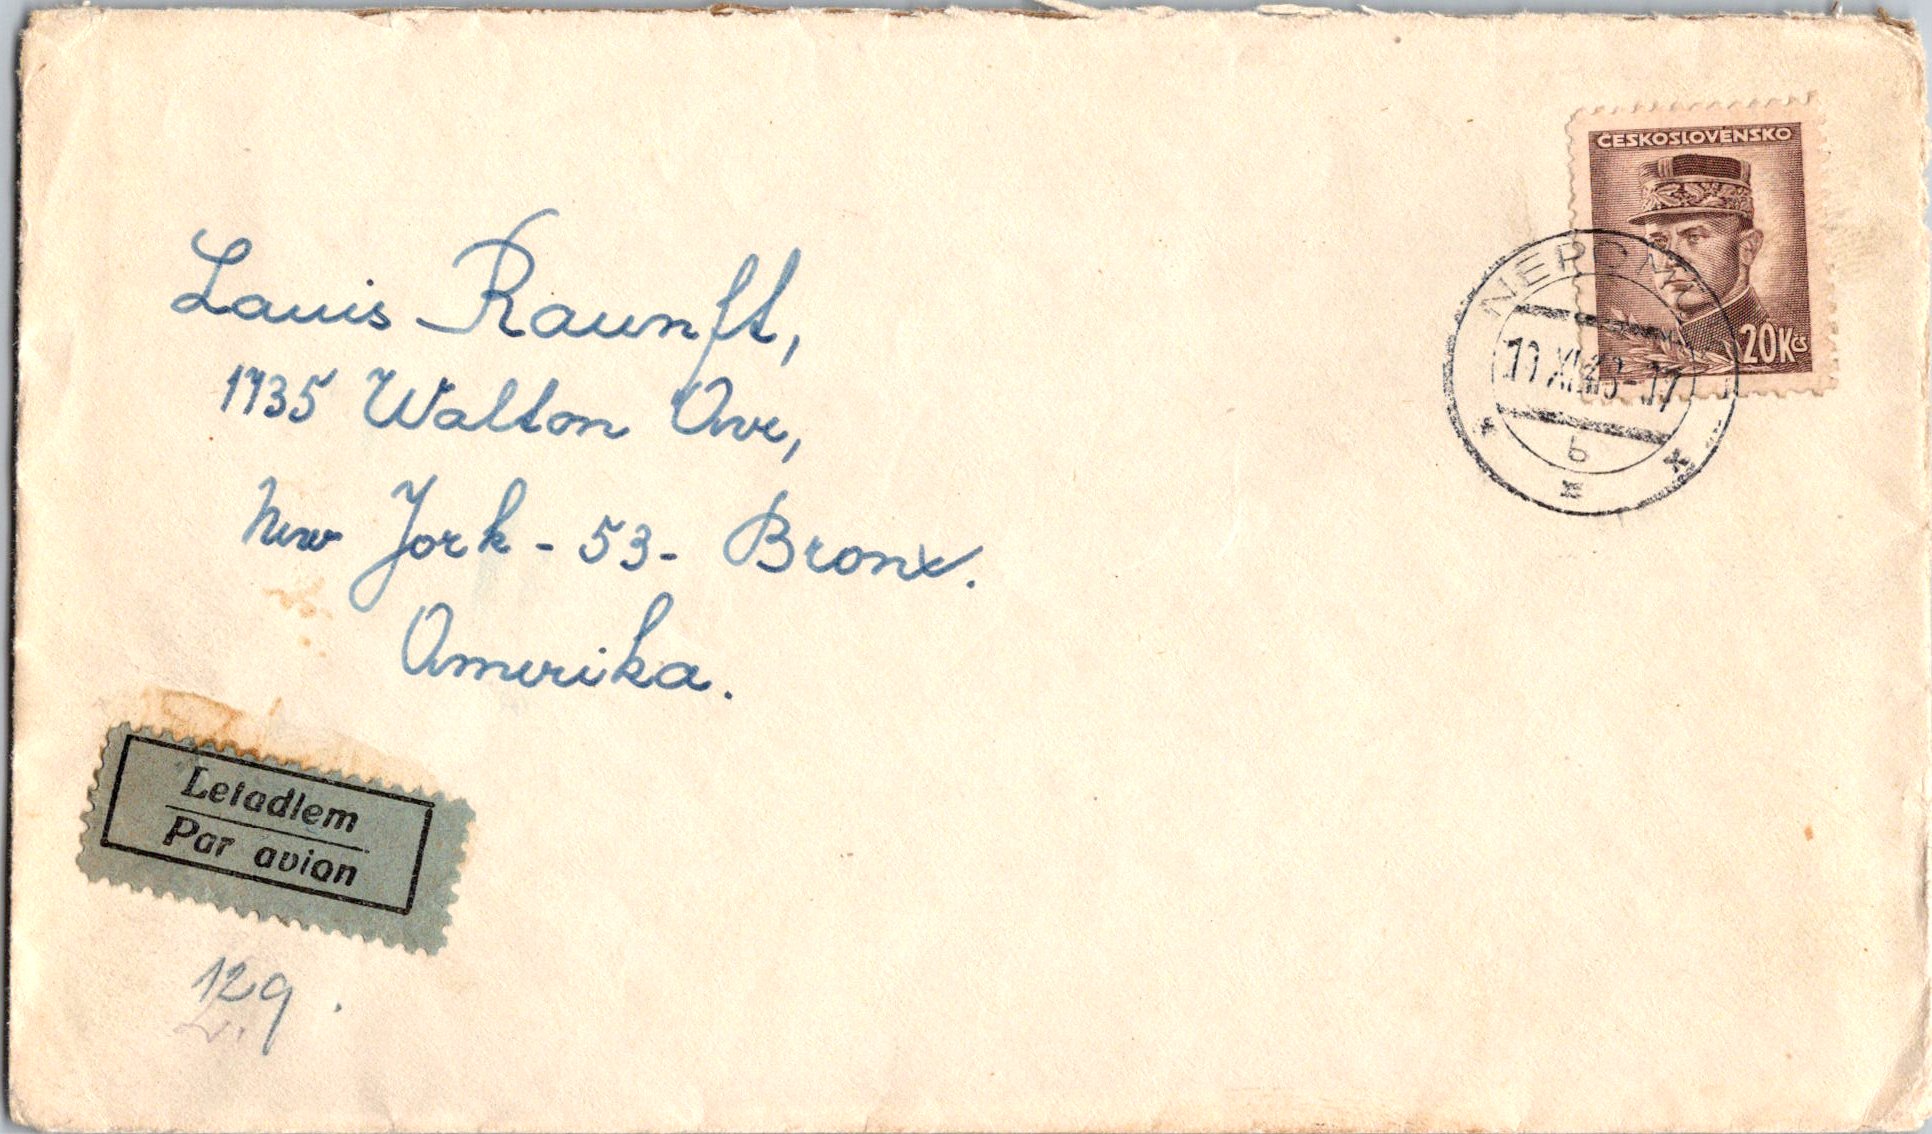 ČESKOSLOVENSKO
20Kčs
b
Lauis Raunft,
1735 Walton Ave,
New York - 53 - Bronx.
Amerika.
Letadlem
Par avion
12g.